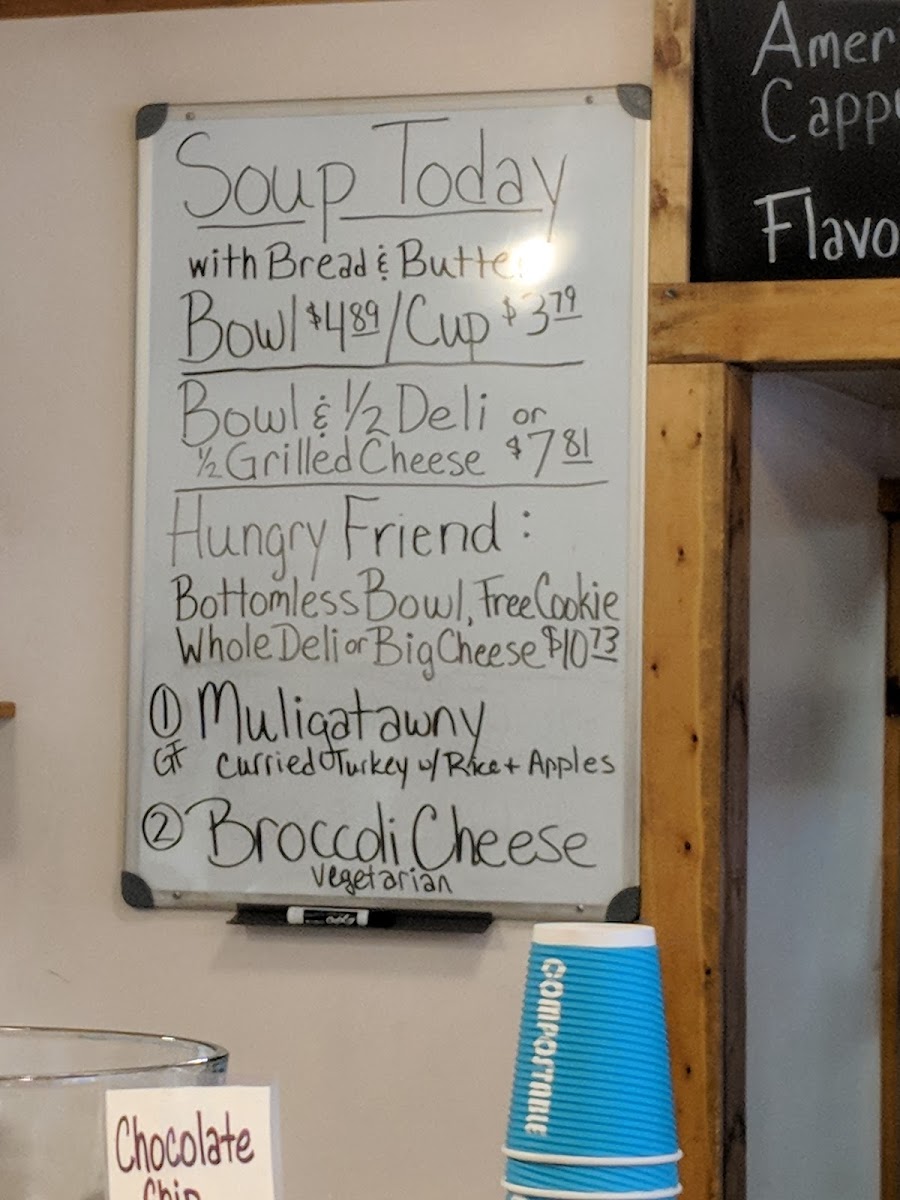 Soup Today
with Bread & Butte
Bowl $4.89 / Cup $3.79
Bowl & 1/2 Deli or
1/2 Grilled Cheese $7.81
Hungry Friend:
Bottomless Bowl, Free Cookie
Whole Deli or Big Cheese $10.73
① Muligatawny
GF Curried Turkey w/ Rice + Apples
② Broccoli Cheese
vegetarian
Amer
Capp
Flavo
EXPO
COMPOSTABLE
Chocolate
Chip